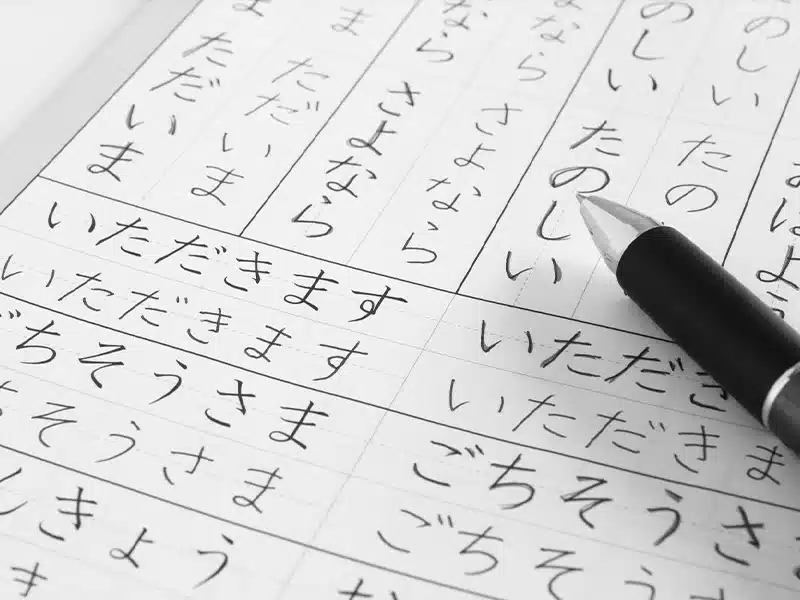 おはよう
のしい
たの
のしい
たのしい
なら
さよなら
なら
さよなら
ま
ただいま
ま
ただいま
いただきます
いただきます
ごちそうさま
ちそうさま
きょう
き
いただき
いただきま
ごちそうさ
ごちそうさ